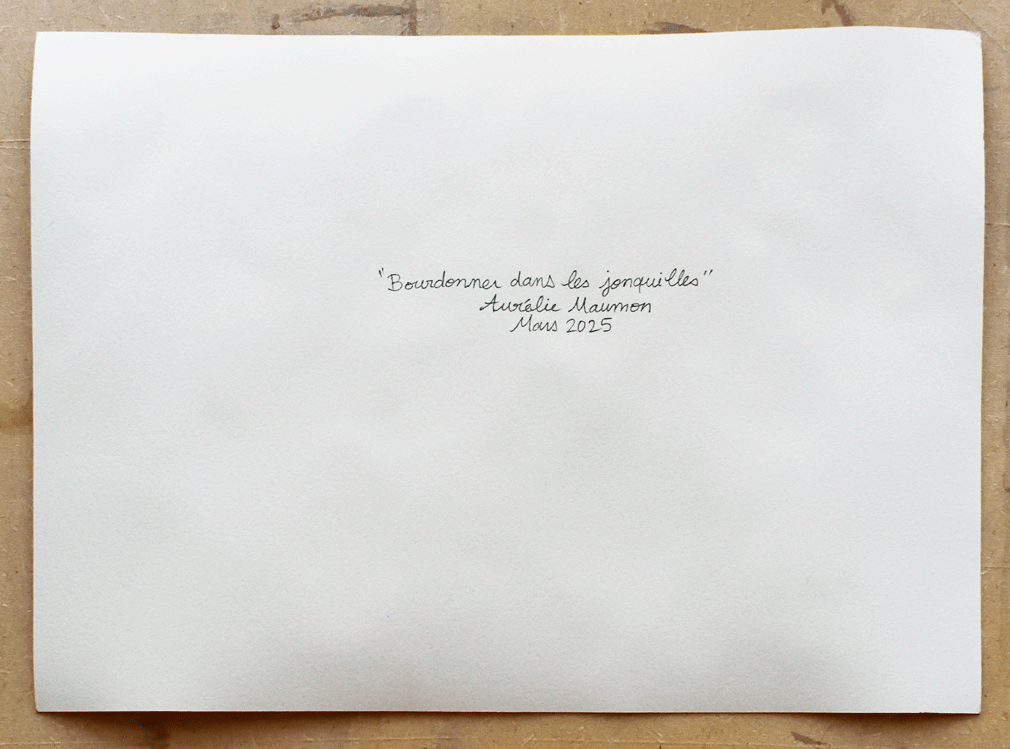 "Bourdonner dans les jonquilles"
Aurélie Maumon
Mars 2025